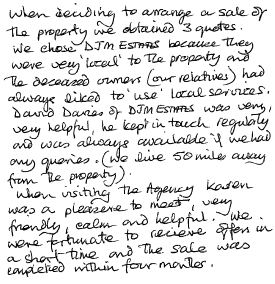 When deciding to arrange a sale of
the property we obtained 3 quotes.
We chose DJM ESTATES because they
were very 'local' to the property and
the deceased owners (our relatives) had
always liked to 'use' local services.
David Davies of DJM ESTATES was very,
very helpful, he kept in touch regularly
and was always available if we had
any queries. (We live 50 miles away
from the property).
When visiting the Agency Karen
was a pleasure to meet, very
friendly, calm and helpful. We
were fortunate to recieve offers in
a short time and the sale was
completed within four months.